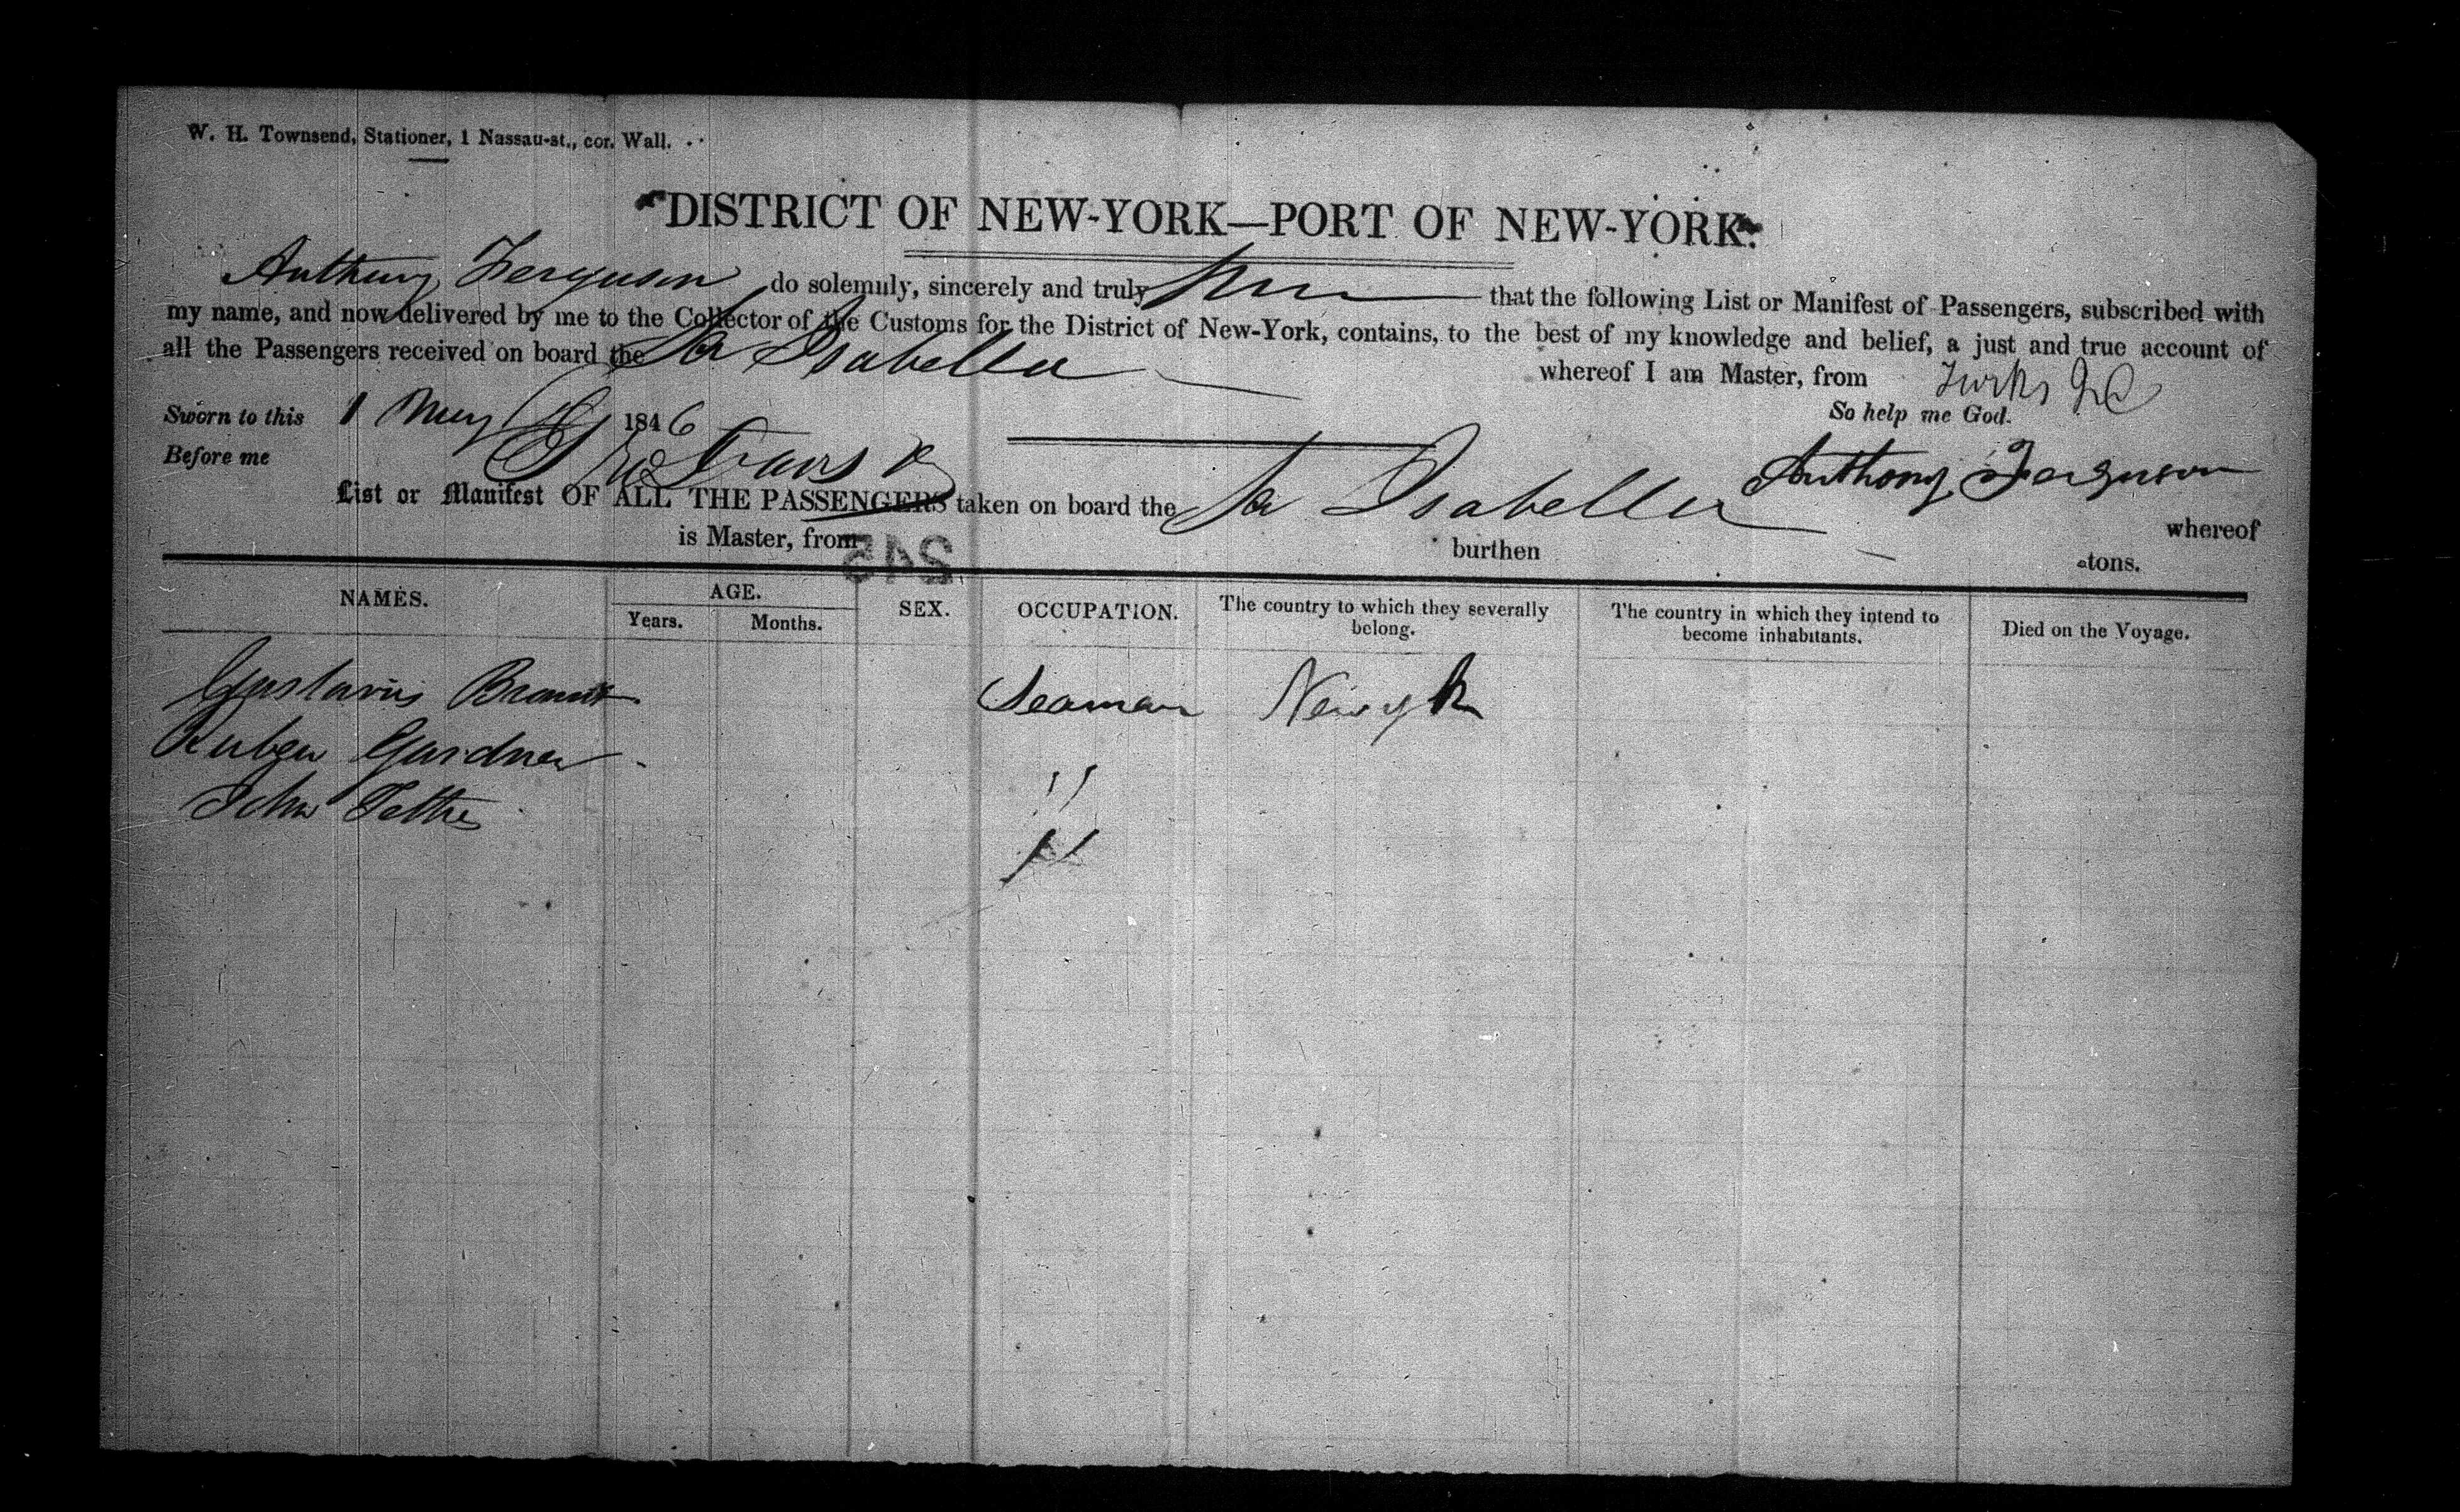 W. H. Townsend, Stationer, 1 Nassau-st., cor. Wall.
DISTRICT OF NEW-YORK—PORT OF NEW-YORK.
Anthony Ferguson do solemnly, sincerely and truly that the following List or Manifest of Passengers, subscribed with
my name, and now delivered by me to the Collector of the Customs for the District of New-York, contains, to the best of my knowledge and belief, a just and true account of
all the Passengers received on board the Isabella whereof I am Master, from Turks
Sworn to this 1 May 1846 So help me God.
Before me Anthony Ferguson
List or Manifest OF ALL THE PASSENGERS taken on board the Isabella whereof
is Master, from burthen tons.
NAMES. AGE. SEX. OCCUPATION. The country to which they severally belong. The country in which they intend to become inhabitants. Died on the Voyage.
Years. Months.
Gustavus Seaman New yk
Ruben Gardner "
John "